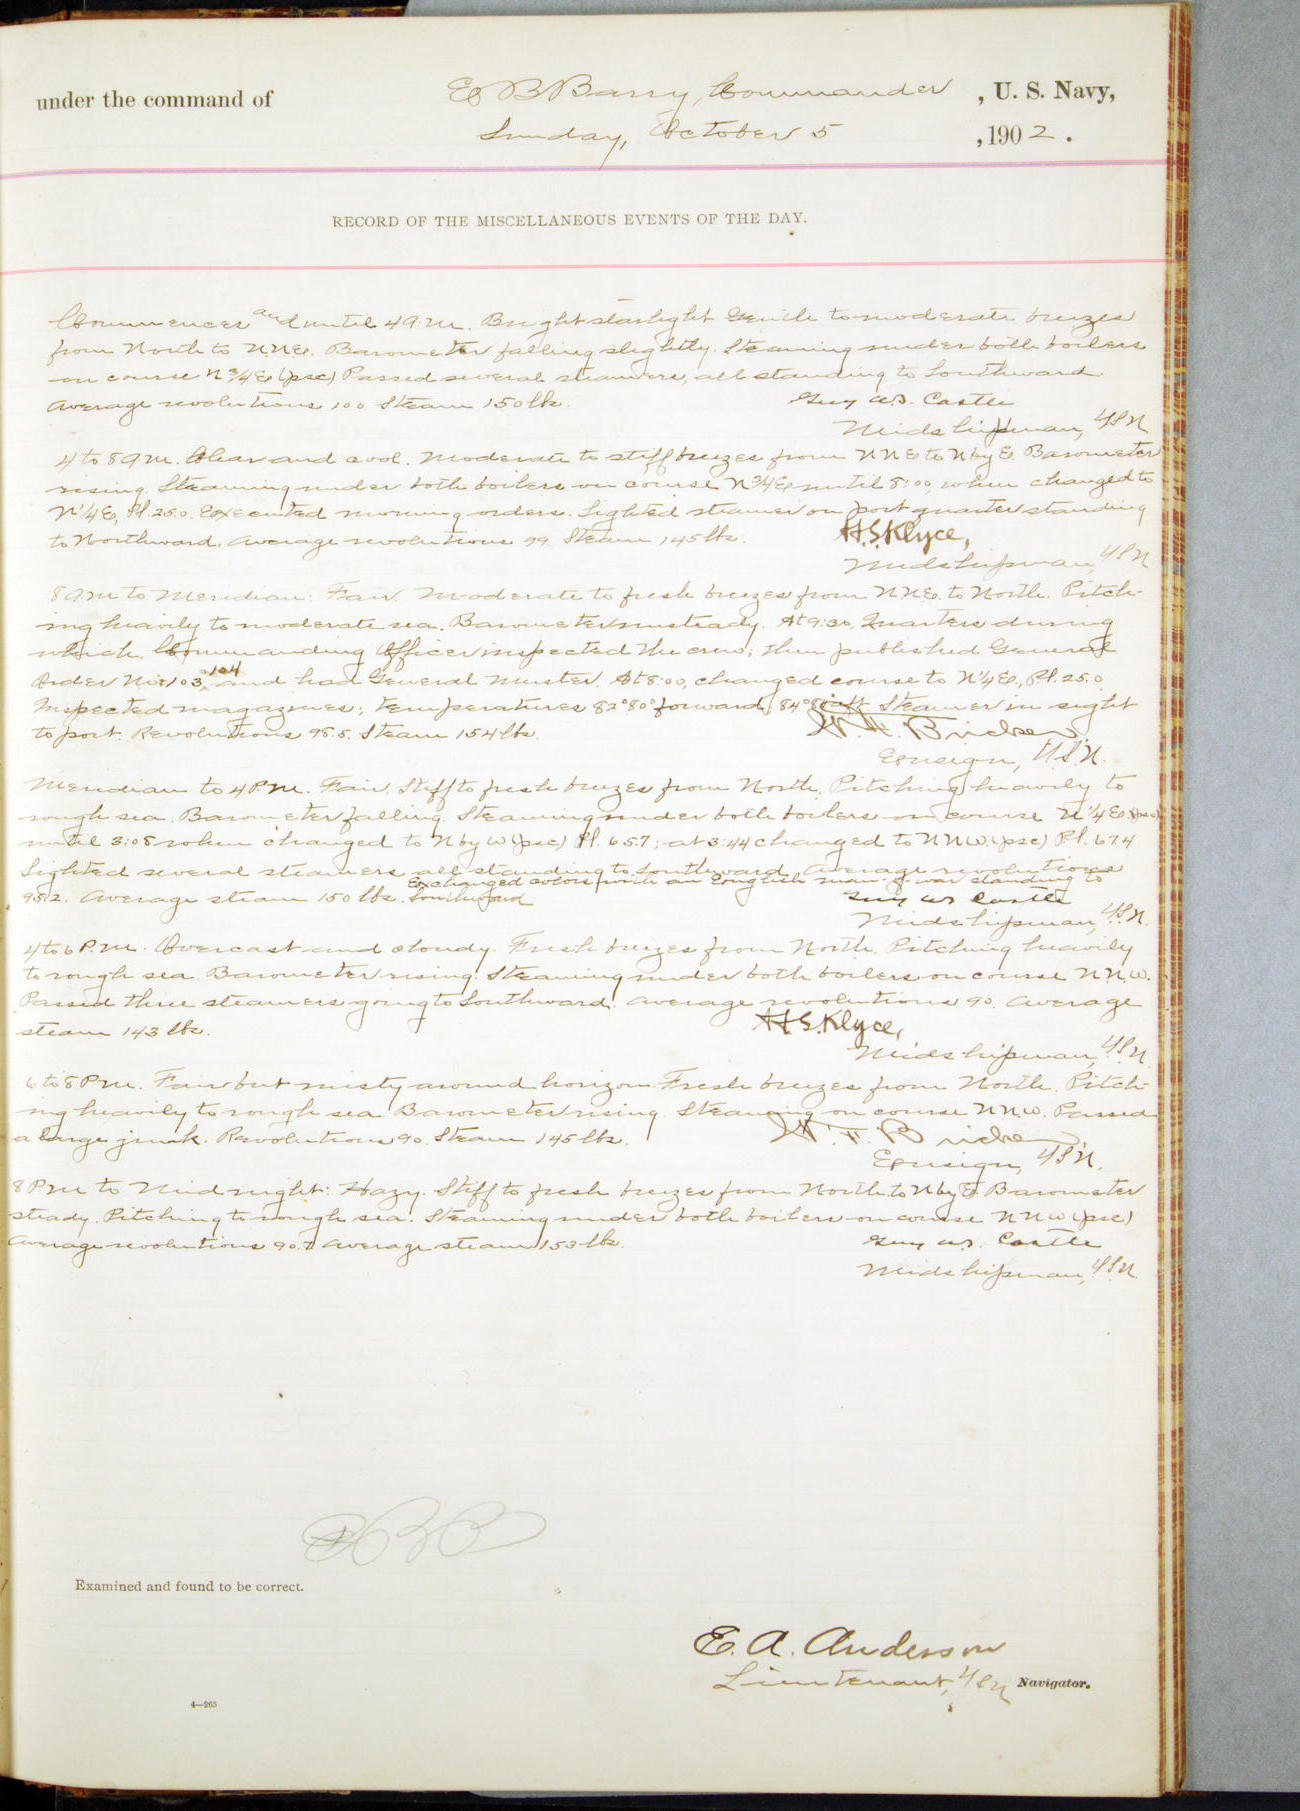 under the command of E B Barry, Commander , U. S. Navy,
Sunday, October 5 , 1902 .
RECORD OF THE MISCELLANEOUS EVENTS OF THE DAY.
Commences and until 4 A.M. Bright starlight Gentle to moderate breezes
from North to NNE. Barometer falling slightly. Steaming under both boilers
on course N 3/4 E (psc) Passed several steamers, all standing to Southward.
Average revolutions 100 Steam 150 lbs.
Guy W.S. Castle
Midshipman, USN
4 to 8 A.M. Clear and cool. Moderate to stiff breezes from NNE to N by E. Barometer
rising. Steaming under both boilers on course N 3/4 E until 8:00, when changed to
N 1/4 E, Pl. 25.0. Executed morning orders. Sighted steamer on port quarter standing
to Northward. Average revolutions 99. Steam 145 lbs.
H.S. Klyce,
Midshipman, USN
8 AM to Meridian: Fair. Moderate to fresh breezes from N.N.E. to North. Pitch-
ing heavily to moderate sea. Barometer unsteady. At 9:30, Quarters during
which Commanding Officer inspected the crew; then published General
Order No. 103, 104 and had General Muster. At 8:00, changed course to N 1/4 E, P.l. 25.0
Inspected magazines; temperatures 82° 80° forward, 84° 8 aft Steamer in sight
to port. Revolutions 98.5. Steam 154 lbs.
W. F. Bricker.
Ensign, U.S.N.
Meridian to 4 P.M. Fair. Stiff to fresh breezes from North. Pitching heavily to
rough sea. Barometer falling. Steaming under both boilers on course N 1/4 E (psc)
until 3:08 when changed to N by W (psc) Pl. 65.7; at 3:44 changed to NNW (psc) Pl. 67.4
Sighted several steamers all standing to Southward. Average revolutions
Exchanged colors with an English man-o-war standing to
95.2. Average steam 150 lbs. Southward
Guy W.S. Castle
Midshipman, U.S.N.
4 to 6 P.M. Overcast and cloudy. Fresh breezes from North. Pitching heavily
to rough sea. Barometer rising. Steaming under both boilers on course N.N.W.
Passed three steamers going to Southward. Average revolutions 90. Average
steam 143 lbs.
H.S. Klyce,
Midshipman U.S.N.
6 to 8 P.M. Fair but misty around horizon. Fresh breezes from North. Pitch-
ing heavily to rough sea. Barometer rising. Steaming on course N.N.W. Passed
a large junk. Revolutions 90. Steam 145 lbs.
W. F. Bricker.
Ensign, U.S.N.
8 PM to Midnight: Hazy. Stiff to fresh breezes from North to N by E. Barometer
steady. Pitching to rough sea. Steaming under both boilers on course NNW (psc)
Average revolutions 90.7 Average steam 153 lbs.
Guy W.S. Castle
Midshipman, U.S.N
EBB
Examined and found to be correct.
E. A. Anderson
Lieutenant, USN Navigator.
4—265